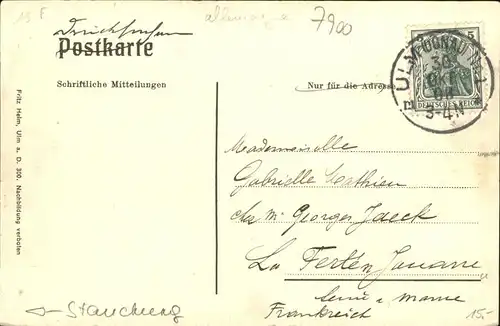 15 F
allemagne
7900
Drucksachen
Postkarte
5
ULM (DONAU) N° 1
30
OKT
08
3-4 N
DEUTSCHES REICH
Schriftliche Mitteilungen
Nur für die Adresse
Fritz Helm, Ulm a. D. 300. Nachbildung verboten
Mademoiselle
Gabrielle Mathieu
chez Mr Georges Jaeck
La Ferté s/ Jouarre
Seine & Marne
Frankreich
Stauchung
15,-